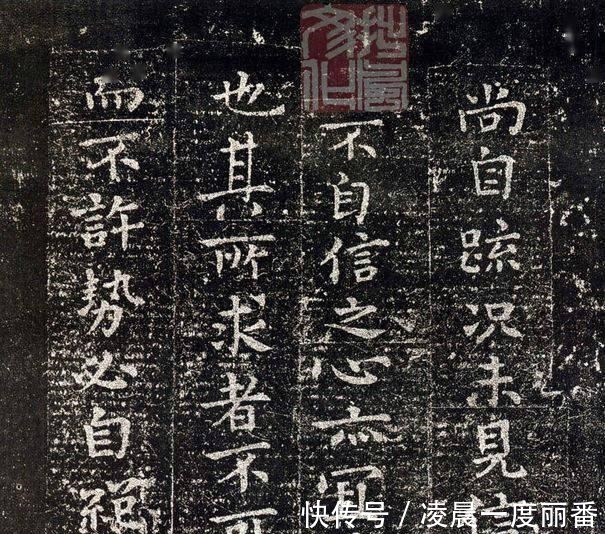 尚自踈况未見
不自信之心亦
也其所求者不可
而不許勢必自絕
快传号／凌晨一度丽番